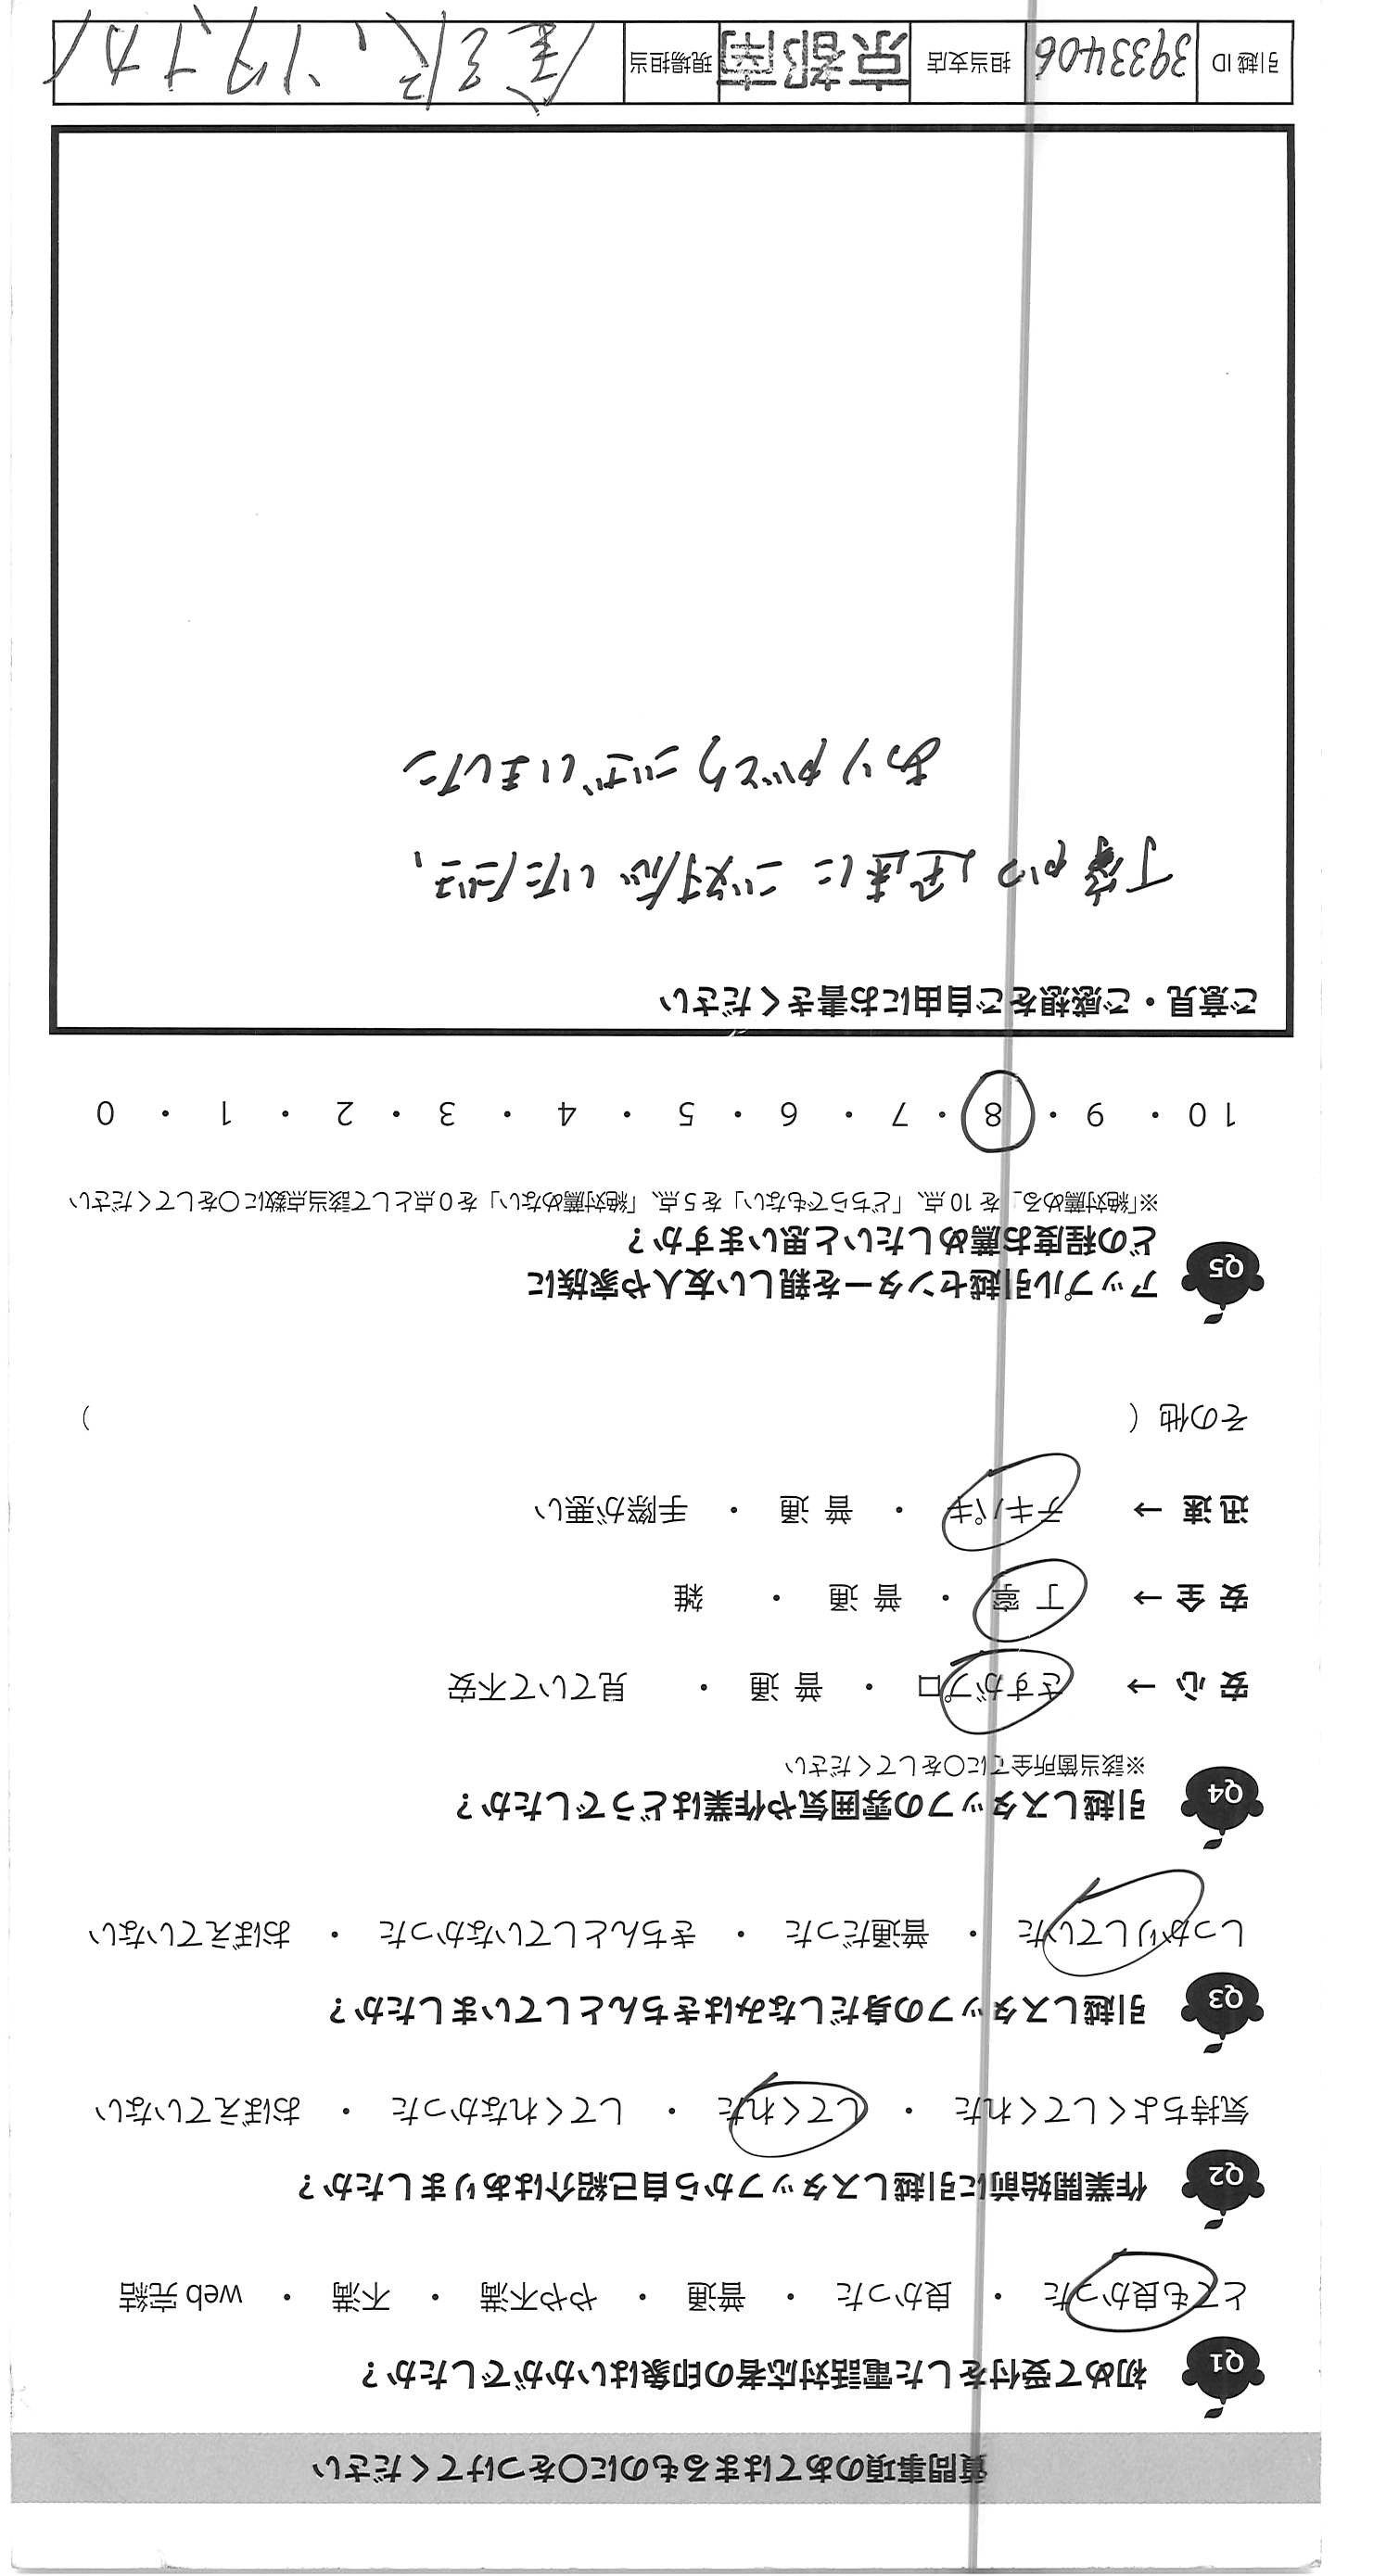 質問事項のあてはまるものに○をつけてください
Q1 初めて受付をした電話対応者の印象はいかがでしたか？
とても良かった ・ 良かった ・ 普通 ・ やや不満 ・ 不満 ・ web 完結
Q2 作業開始前に引越しスタッフから自己紹介はありましたか？
気持ちよくしてくれた ・ してくれた ・ してくれなかった ・ おぼえていない
Q3 引越しスタッフの身だしなみはきちんとしていましたか？
しっかりしていた ・ 普通だった ・ きちんとしていなかった ・ おぼえていない
Q4 引越しスタッフの雰囲気や作業はどうでしたか？
※該当箇所全てに○をしてください
安心 → さすがプロ ・ 普通 ・ 見ていて不安
安全 → 丁寧 ・ 普通 ・ 雑
迅速 → テキパキ ・ 普通 ・ 手際が悪い
その他（ ）
Q5 アップル引越センターを親しい友人や家族に
どの程度お薦めしたいと思いますか？
※「絶対薦める」を10点、「どちらでもない」を5点、「絶対薦めない」を0点として該当点数に○をしてください
10 ・ 9 ・ 8 ・ 7 ・ 6 ・ 5 ・ 4 ・ 3 ・ 2 ・ 1 ・ 0
ご意見・ご感想をご自由にお書きください
丁寧かつ迅速にご対応いただき、
ありがとうございました
引越ID 3933406 担当支店 京都南 現場担当